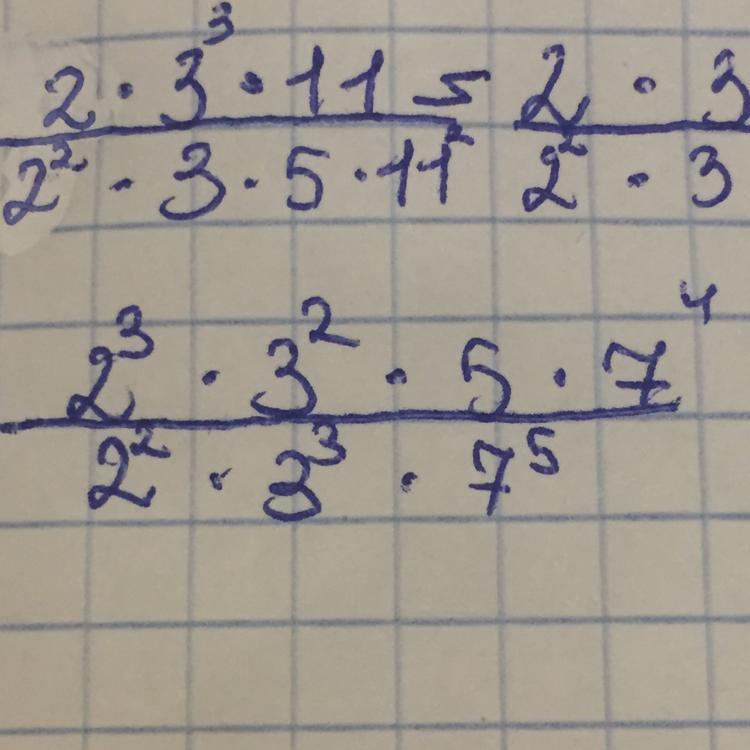 2 · 3³ · 11 = 2 · 3
2² · 3 · 5 · 11² 2² · 3
2³ · 3² · 5 · 7⁴
2² · 3³ · 7⁵